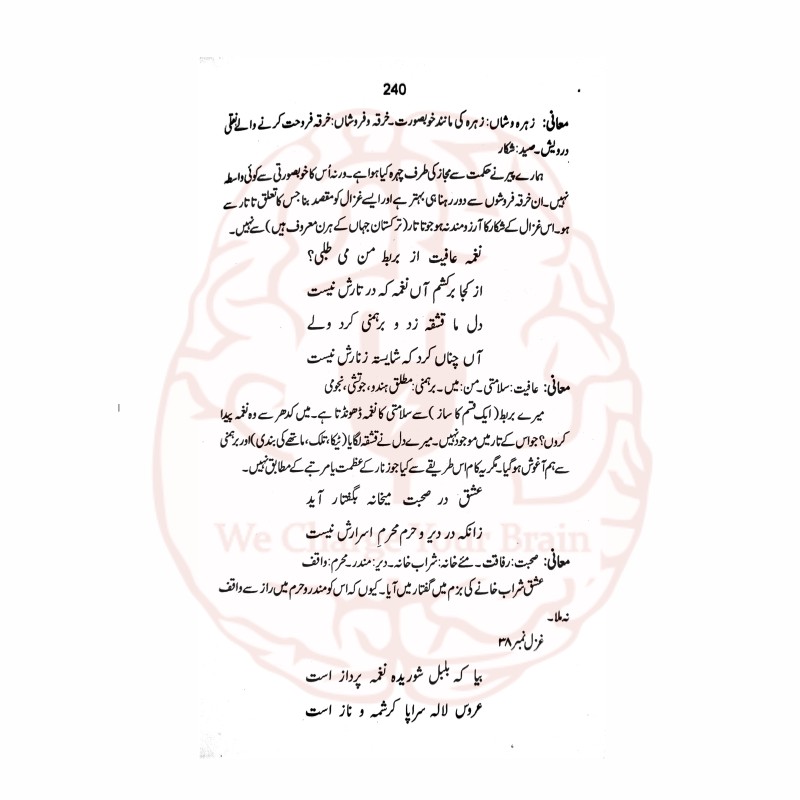 240
معانی: زہرہ وشاں: زہرہ کی مانند خوبصورت۔ خرقہ وفروشاں: خرقہ فروحت کرنے والے نقلی
درویش۔ صید: شکار
ہمارے پیر نے حکمت سے مجاز کی طرف چہرہ کیا ہوا ہے۔ ورنہ اُس کا خوبصورتی سے کوئی واسطہ
نہیں۔ ان خرقہ فروشوں سے دور رہنا ہی بہتر ہے اور ایسے غزال کو مقصد بنا جس کا تعلق تاتار سے
ہو۔ اس غزال کے شکار کا آرزو مند نہ ہو جو تاتار (ترکستان جہاں کے ہرن معروف ہیں) سے نہیں۔
نغمہ عافیت از بربط من می طلبی؟
از کجا برکشم آں نغمہ کہ در تارش نیست
دل ما قشقہ زد و برہمنی کرد ولے
آں چناں کرد کہ شایستہ زنارش نیست
معانی: عافیت: سلامتی۔ من: میں۔ برہمنی: مطلق ہندو، جوتشی، نجومی
میرے بربط (ایک قسم کا ساز) سے سلامتی کا نغمہ ڈھونڈتا ہے۔ میں کدھر سے وہ نغمہ پیدا
کروں؟ جو اس کے تار میں موجود نہیں۔ میرے دل نے قشقہ لگایا (ٹیکا، تلک، ماتھے کی بندی) اور برہمنی
سے ہم آغوش ہو گیا۔ مگر یہ کام اس طریقے سے کیا جو زنار کے عظمت یا مرتبے کے مطابق نہیں۔
عشق در صحبت میخانہ بگفتار آید
زانکہ در دیر و حرم محرمِ اسرارش نیست
We Change Your Brain
معانی: صحبت: رفاقت۔ مئے خانہ: شراب خانہ۔ دیر: مندر۔ محرم: واقف
عشق شراب خانے کی بزم میں گفتار میں آیا۔ کیوں کہ اس کو مندر و حرم میں راز سے واقف
نہ ملا۔
غزل نمبر ۳۸
بیا کہ بلبل شوریدہ نغمہ پرداز است
عروس لالہ سراپا کرشمہ و ناز است